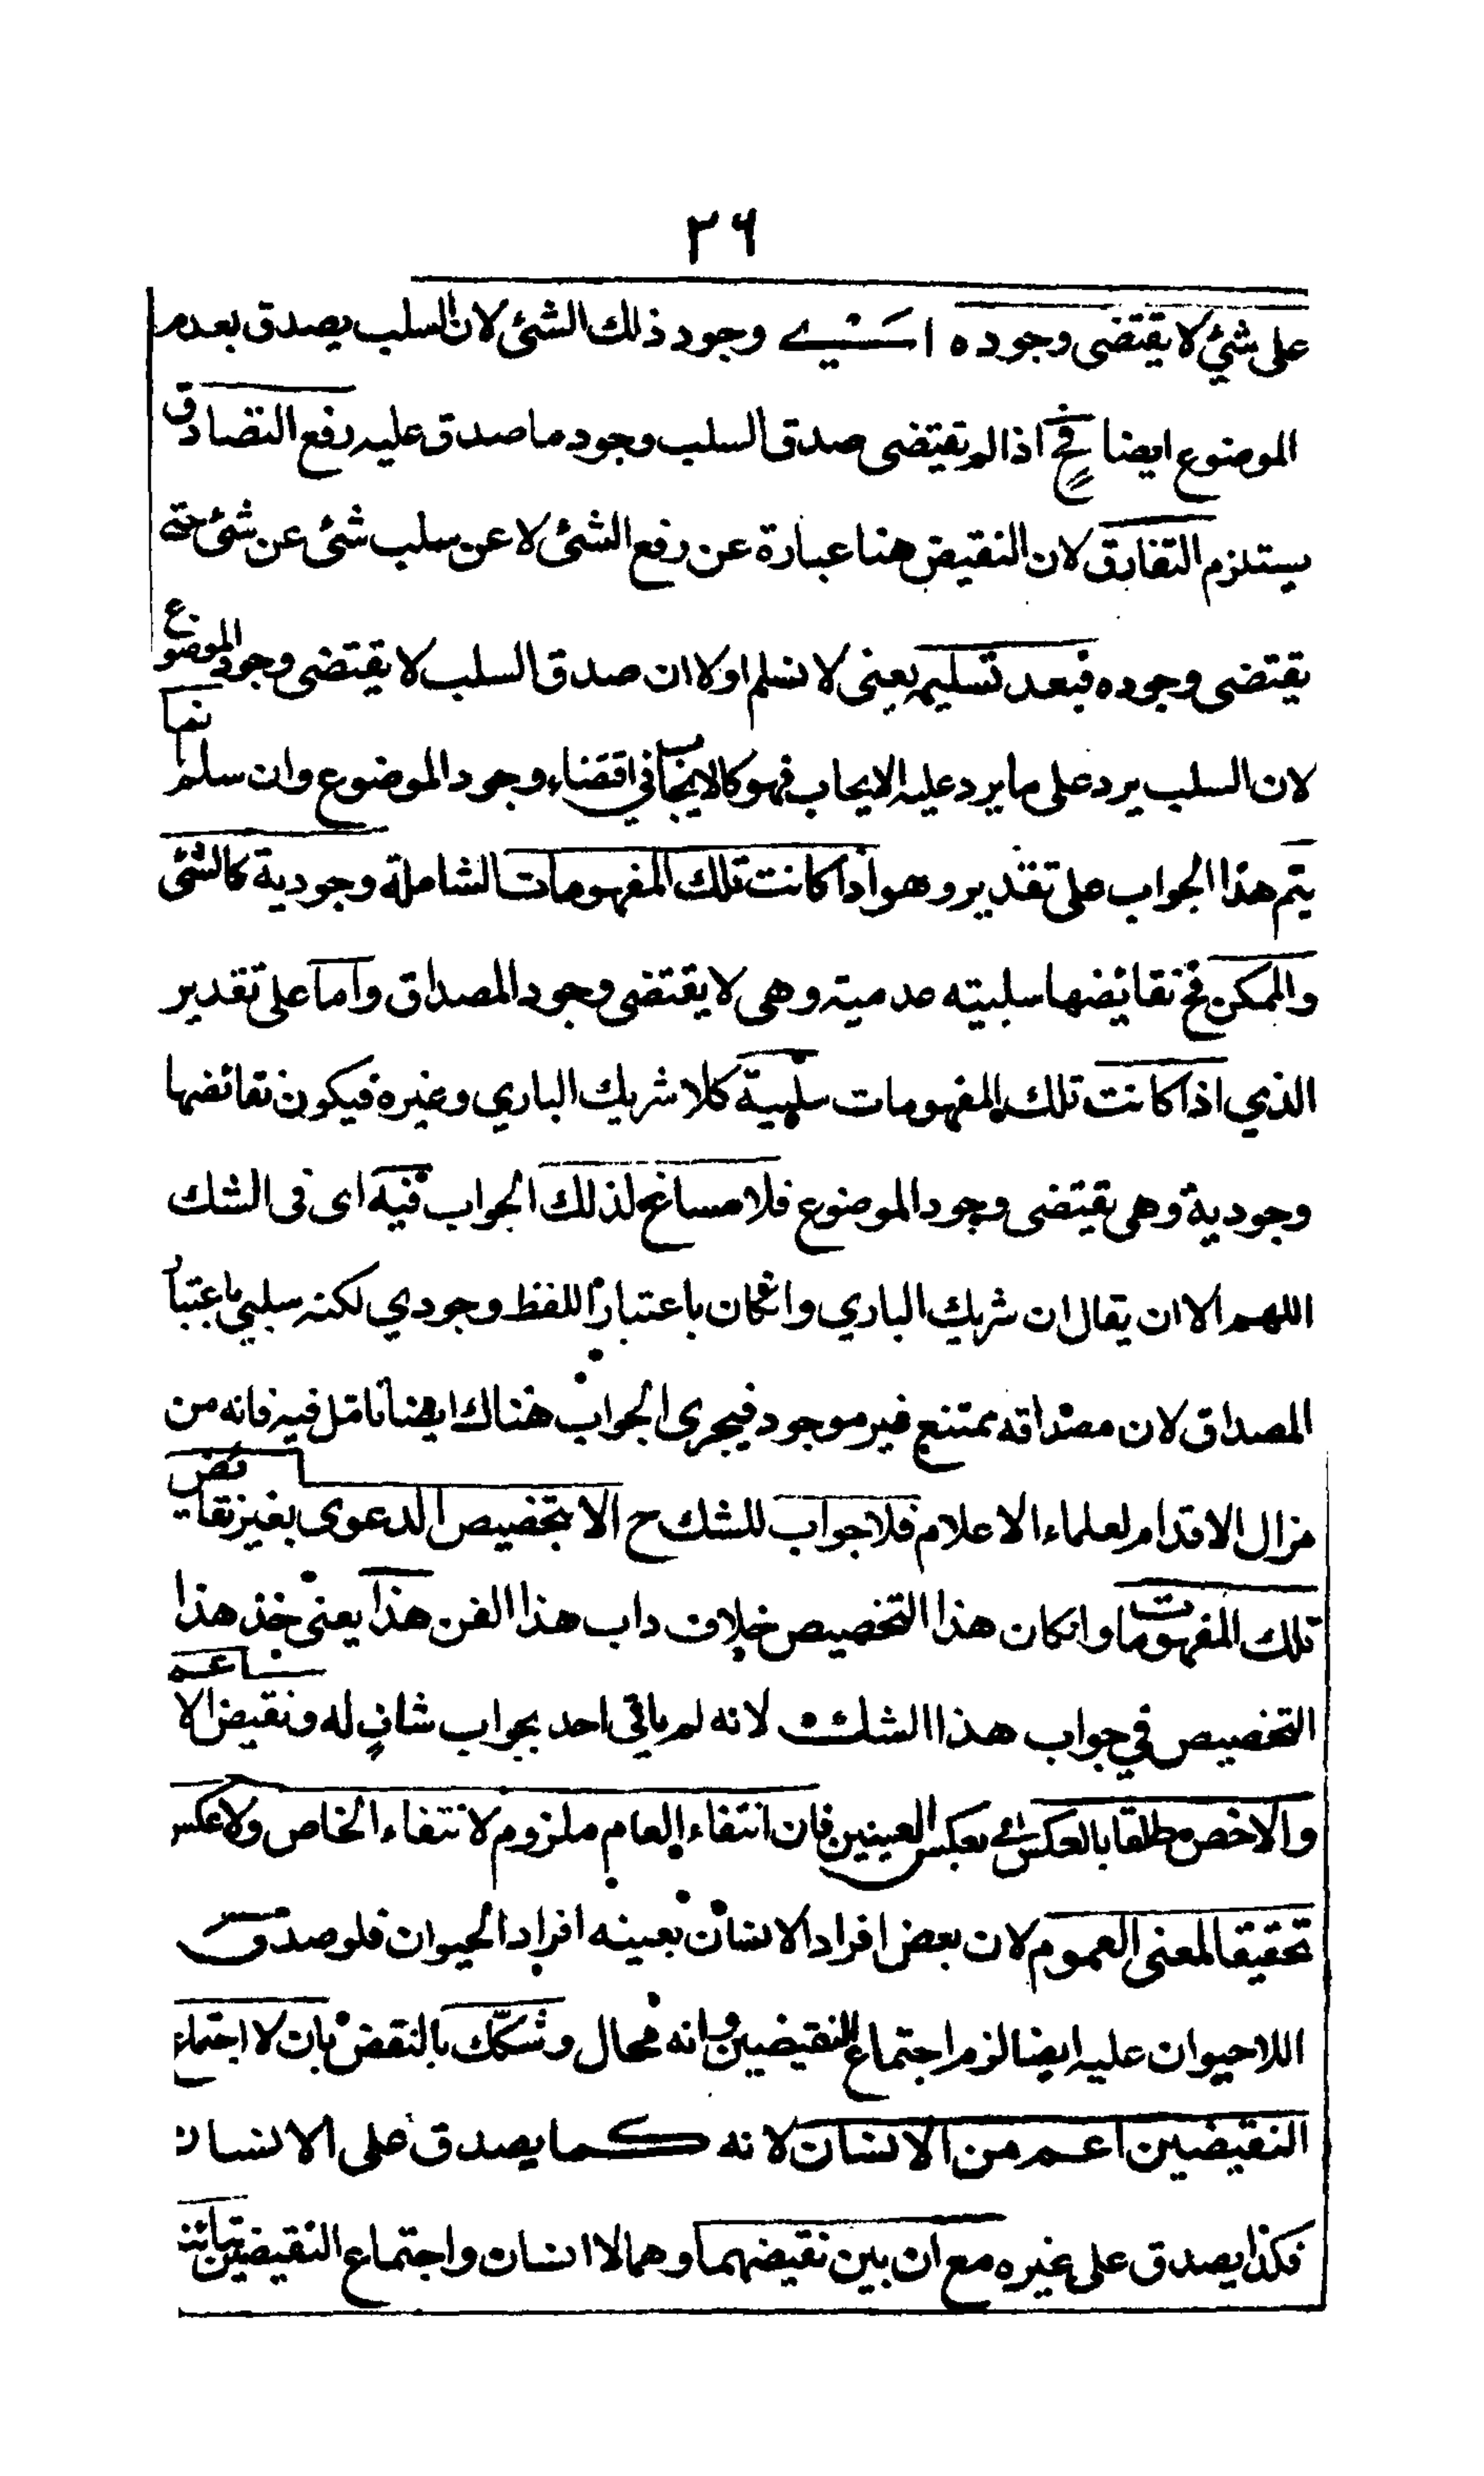 ٣٦
على شئ لا يقتضى وجوده اے وجود ذلك الشئ لان السلب يصدق بعدم
الموضوع ايضا فح اذا لم تقتضى صدق السلب وجود ما صدق عليه رفع التصادق
يستلزم التفارق لان النقيض هنا عبارة عن رفع الشئ لا عن سلب شئ عن شئ حتى
يقتضى وجوده فبعد تسليمه يعنى لا نسلم اولا ان صدق السلب لا يقتضى وجود الموضوع
لان السلب يرد على ما يرد عليه الايجاب فهو كالايجاب في اقتضاء وجود الموضوع وان سلم انما
يتم هذا الجواب على تقدير وهو اذا كانت تلك المفهومات الشاملة وجودية كالشئ
والممكن فح نقائضها سلبيته عدمية وهى لا يقتضى وجود المصداق واما على تقدير
الذي اذا كانت تلك المفهومات سلبية كلا شريك الباري وغيره فيكون نقائضها
وجودية وهى تقتضى وجود الموضوع فلا مساغ لذلك الجواب فيه اى فى الشك
اللهم الا ان يقال ان شريك الباري وانكان باعتبار اللفظ وجودي لكنه سلبي باعتبار
المصداق لان مصداقه ممتنع غير موجود فيجرى الجواب هناك ايضا تامل فيه فانه من
مزال الاقدام لعلماء الاعلام فلا جواب للشك ح الا بتخصيص الدعوى بغير نقائض
تلك المفهومات وانكان هذا التخصيص خلاف داب هذا الفن هذا يعنى خذ هذا
التخصيص في جواب هذا الشك لانه لم ياتى احد بجواب شاف له ونقيض الاعم
والاخص مطلقا بالعكس اے بعكس العينين فان انتفاء العام ملزوم لانتفاء الخاص ولا عكس
تحقيقا لمعنى العموم لان بعض افراد الانسان بعينه افراد الحيوان فلو صدق
اللاحيوان عليه ايضا لزم اجتماع النقيضين وانه محال وشكك بالنقض بان لا اجتماع
النقيضين اعم من الانسان لانه كما يصدق على الانسان
فكذا يصدق على غيره مع ان بين نقيضهما وهما لا انسان واجتماع النقيضين تبائنا